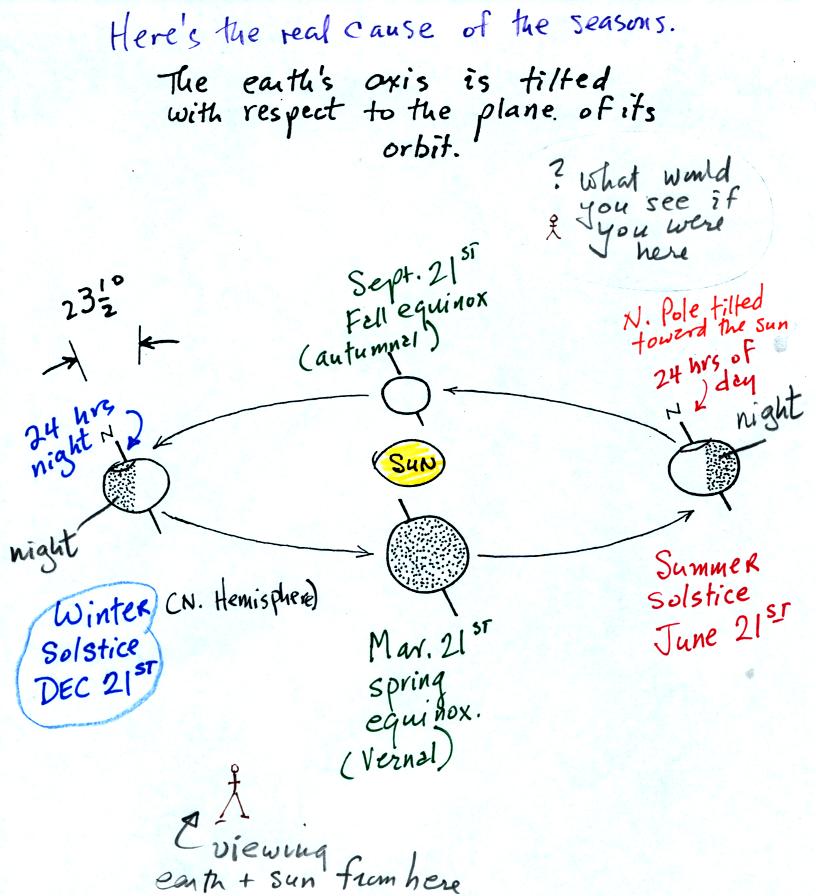 Here's the real cause of the seasons.
The earth's axis is tilted
with respect to the plane of its
orbit.
? what would
you see if
you were
here
23½°
Sept. 21ST
Fall equinox
(autumnal)
N. Pole tilted
toward the sun
24 hrs of
day
N
night
24 hrs
night
N
night
SUN
Winter
Solstice
DEC 21ST
(N. Hemisphere)
Mar. 21ST
spring
equinox.
(Vernal)
Summer
Solstice
June 21ST
viewing
earth + sun from here